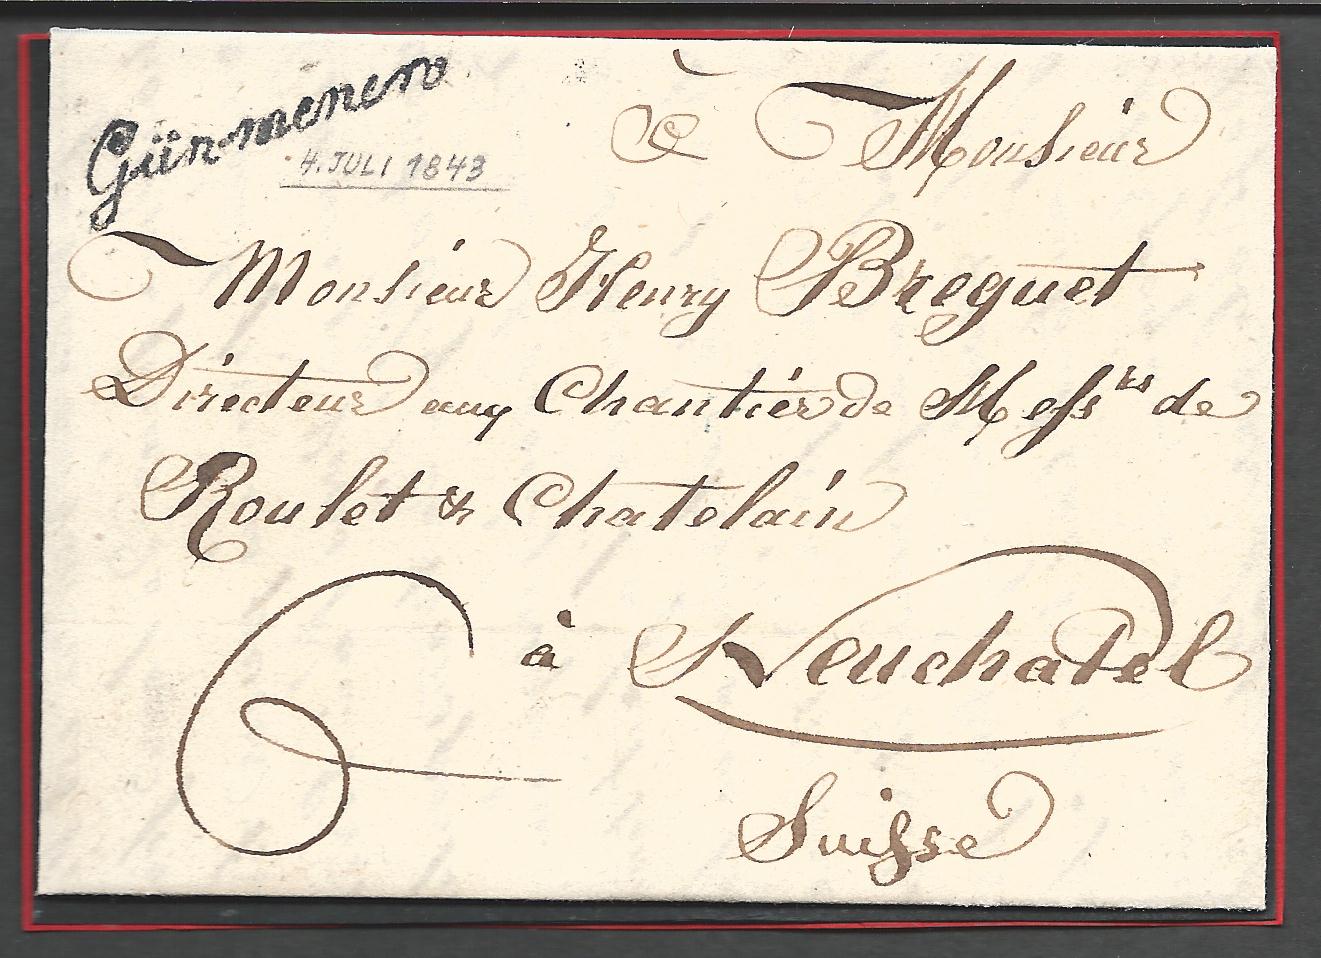 Günmenen
4. JULI 1843
à Monsieur
Monsieur Henry Breguet
Directeur aux Chantier de Mess^rs de
Roulet & Chatelain
à Neuchatel
Suisse